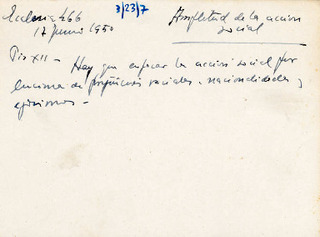 Ecclesia 466
17 junio 1950
3/23/7
Amplitud de la accion
social
Pio XII - Hay que enfocar la acción social por
encima de prejuicios raciales, nacionalidades,